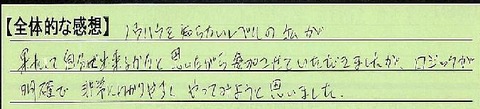 【全体的な感想】ノウハウを知らないレベルの私が
果たして自分が出来るかなと思いながら参加させていただきましたが、ロジックが
明確で非常にわかりやすく やってみようと思いました。